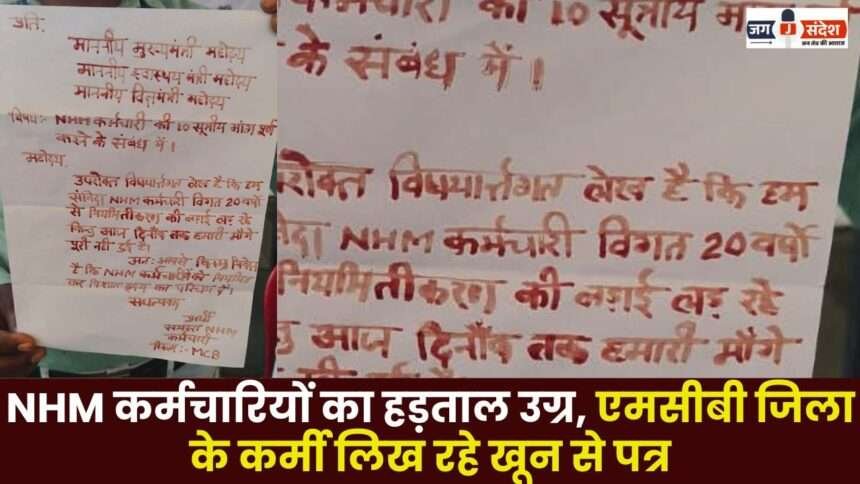 प्रति,
माननीय मुख्यमंत्री महोदय
माननीय स्वास्थ्य मंत्री महोदय
माननीय वित्तमंत्री महोदय
विषय:- NHM कर्मचारी की 10 सूत्रीय मांग पूर्ण
करने के संबंध में।
महोदय,
उपरोक्त विषयार्न्तगत लेख है कि हम
संविदा NHM कर्मचारी विगत 20 वर्षो
से नियमितीकरण की लड़ाई लड़ रहे
किन्तु आज दिनाँक तक हमारी माँगे
पूरी नहीं हुई है।
अतः आपसे विनम्र निवेदन
है कि NHM कर्मचारियों को नियमित
कर
का परिचय दें।
धन्यवाद
प्रार्थी
समस्त NHM
कर्मचारी
जिला:- MCB
कर्मचारी की 10 सूत्रीय मा
के संबंध में।
रोक्त विषयार्न्तगत लेख है कि हम
वेदा NHM कर्मचारी विगत 20 वर्षो
नियमितीकरण की लड़ाई लड़ रहे
तु आज दिनाँक तक हमारी माँगे
जग संदेश
जन मन की आवाज
NHM कर्मचारियों का हड़ताल उग्र, एमसीबी जिला
के कर्मी लिख रहे खून से पत्र